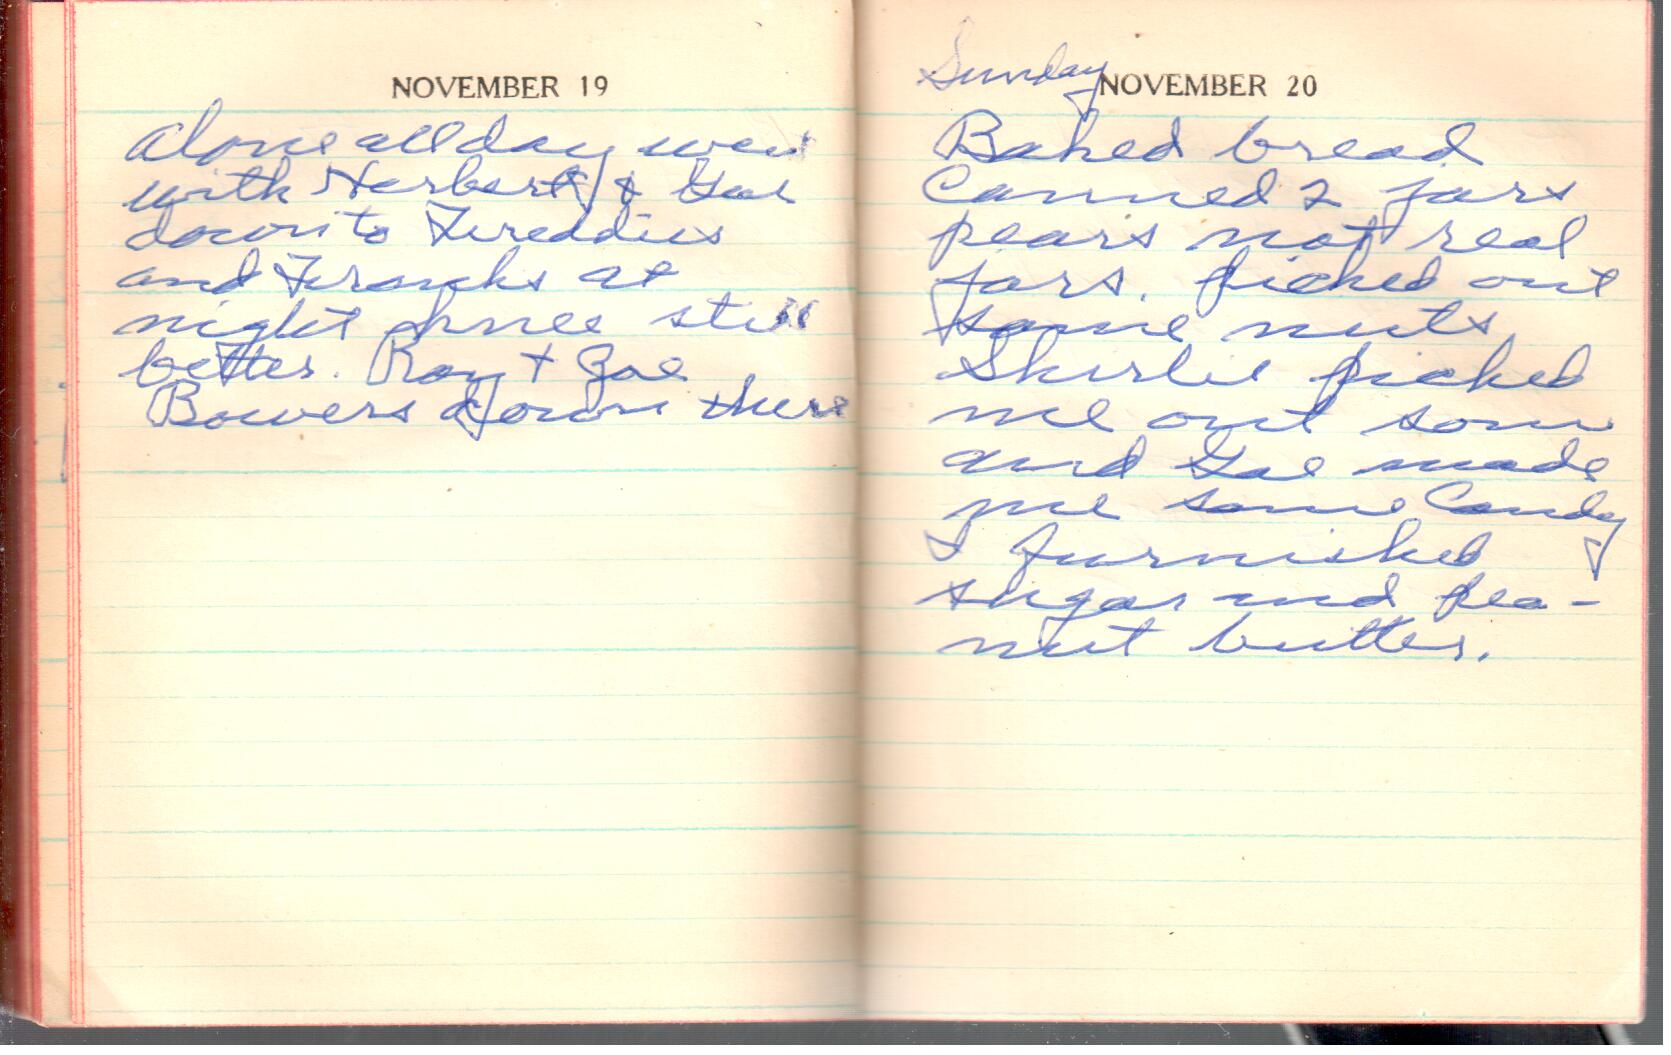 NOVEMBER 19
Alone all day went
with Herbert & Gae
down to Freddies
and Franks at
night knee still
better. Roy + Zoe
Bowers down there
Sunday NOVEMBER 20
Baked bread
Canned 2 jars
pears not real
jars. picked out
some nuts
Shirlie picked
me out som
and Gae made
me some Candy
I furnished
sugar and pea-
nut butter.